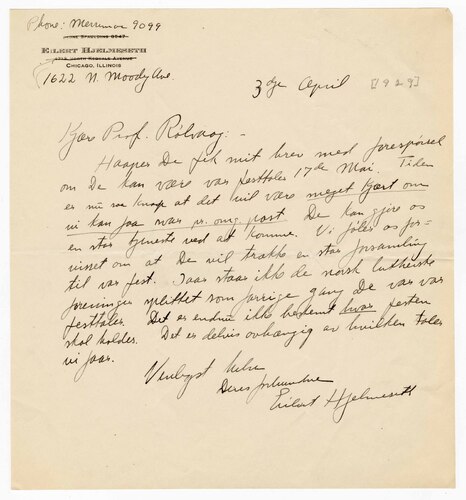 Phone: Merrimac 9099
PHONE SPAULDING 9647
EILERT HJELMESETH
NORTH KEDVALE AVENUE
CHICAGO, ILLINOIS
1622 N. Moody Ave.
3dje April [1929]
Kjære Prof. Rölvaag:-
Haaper De fik mit brev med forespörsel
om De kan være vor festtaler 17de Mai. Tiden
er nu saa knap at det vil være meget kjært om
vi kan faa svar pr. omg. post. De kan gjöre os
en stor tjeneste ved at komme. Vi föler os for-
visset om at De vil trække en stor forsamling
til vor fest. Iaar staar ikke de norsk lutherske
foreninger splittet som forrige gang De var vor
festtaler. Det er endnu ikke bestemt hvor festen
skal holdes. Det er delvis avhængig av hvilken taler
vi faar.
Venligst hilsen
Deres forbundne
Eilert Hjelmeseth